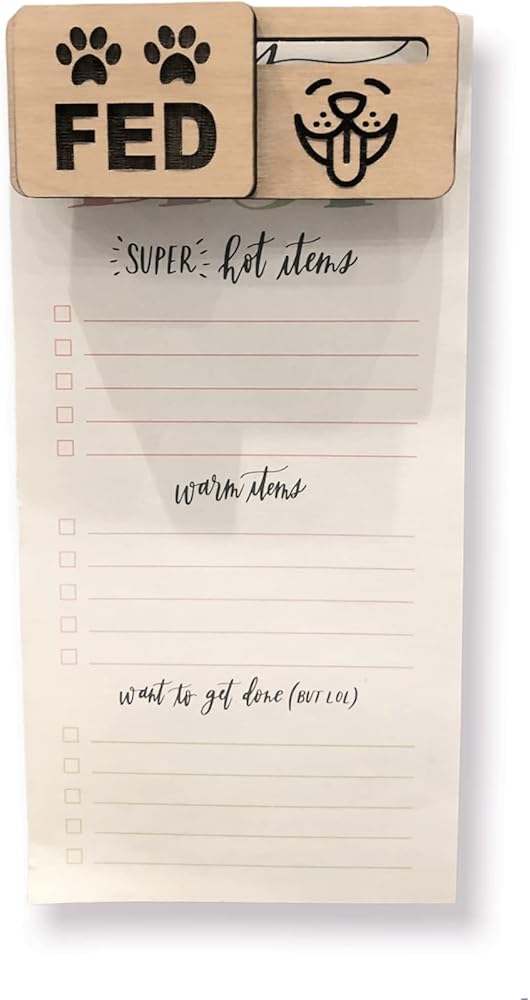 FED
SUPER hot items
warm items
want to get done (BUT LOL)